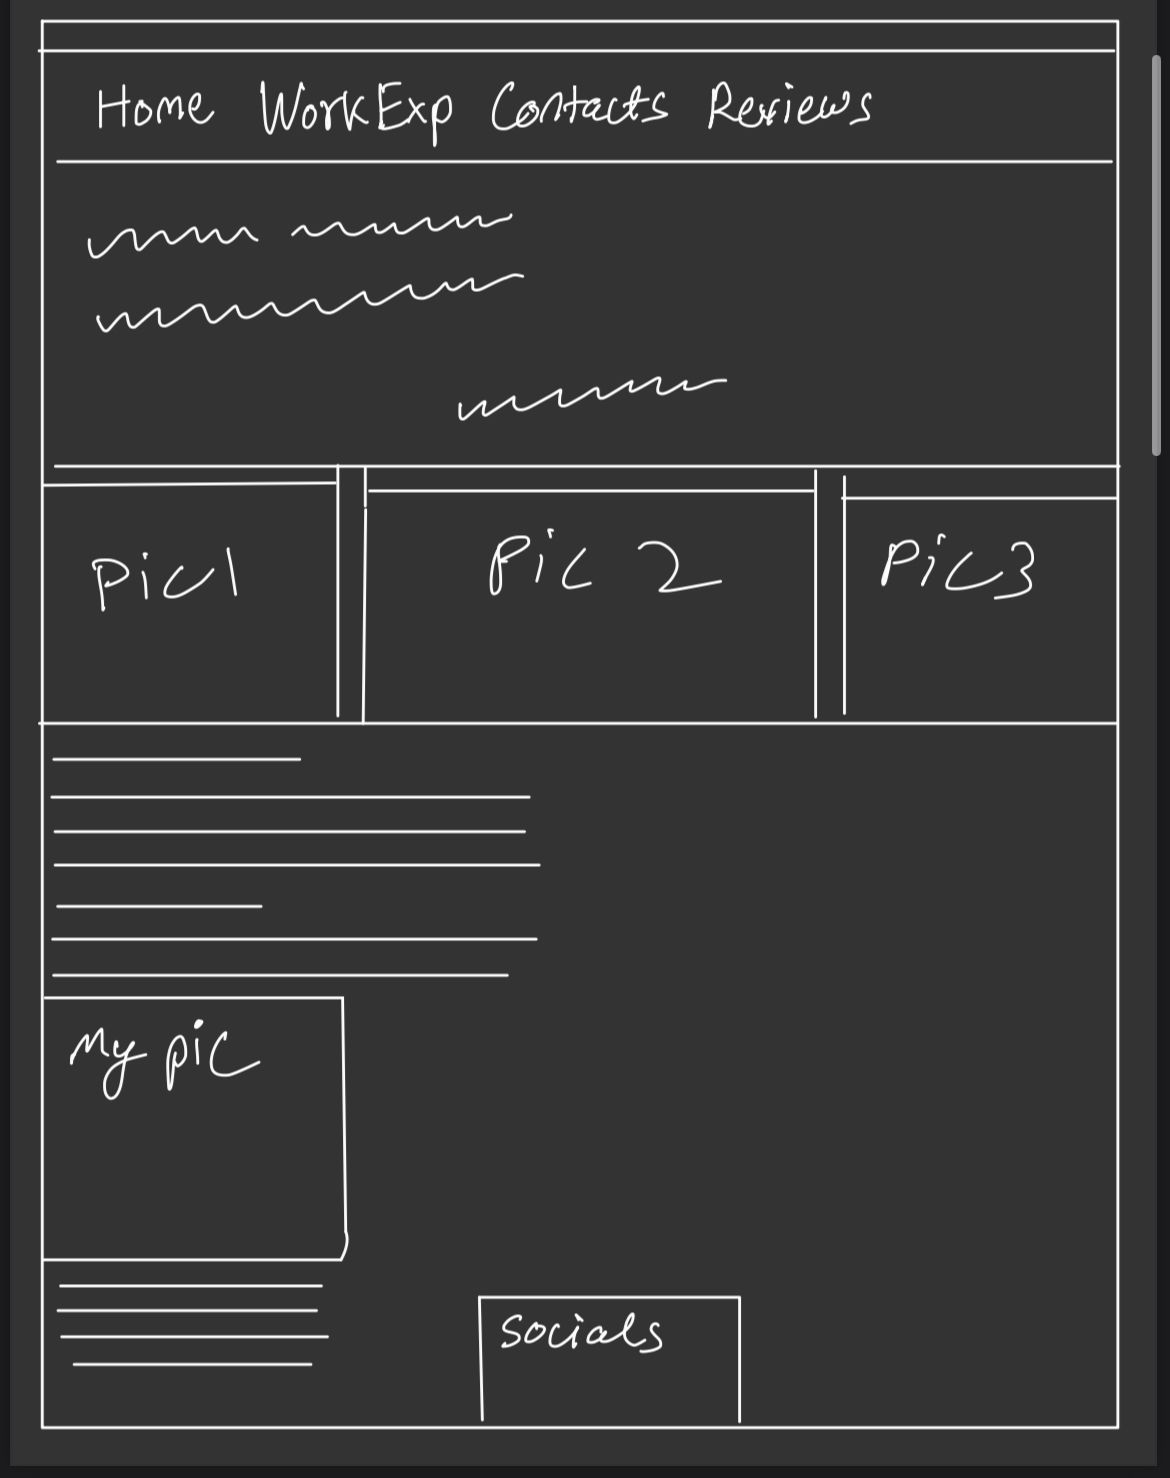 Home WorkExp Contacts Reviews
Pic1 Pic 2 Pic3
My pic
Socials